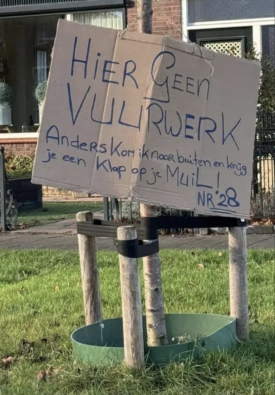 HiER GEEN
VUURWERK
Anders Kom ik naar buiten en krijg
je een Klap op je MuiL.
NR 28